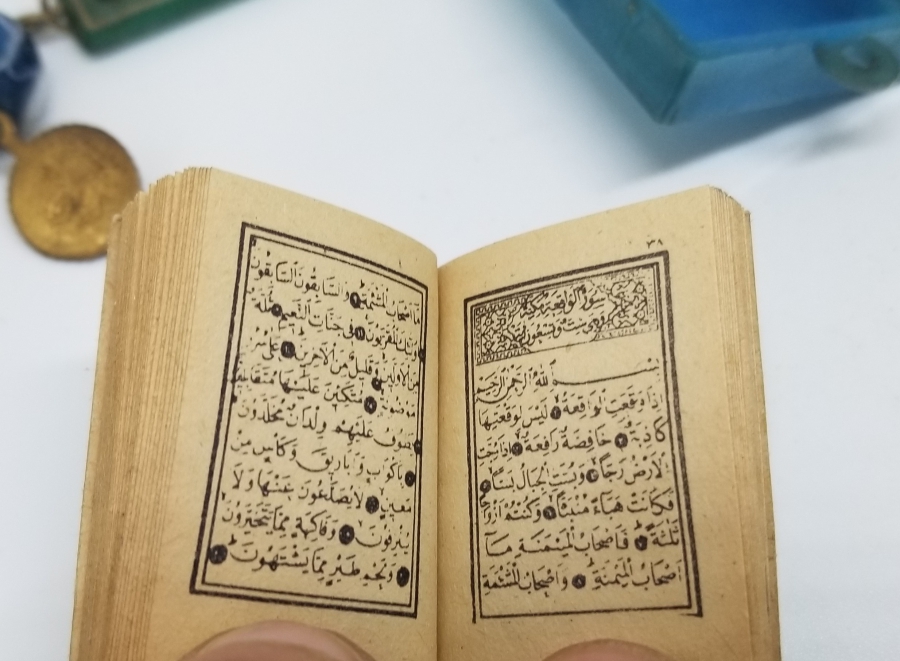 ٣٨
سورة الواقعة مكية
وهي ست وتسعون
بسم الله الرحمن الرحيم
إِذَا وَقَعَتِ الْوَاقِعَةُ ۝ لَيْسَ لِوَقْعَتِهَا
كَاذِبَةٌ ۝ خَافِضَةٌ رَافِعَةٌ ۝ إِذَا رُجَّتِ
الْأَرْضُ رَجًّا ۝ وَبُسَّتِ الْجِبَالُ بَسًّا ۝
فَكَانَتْ هَبَاءً مُنْبَثًّا ۝ وَكُنْتُمْ أَزْوَاجًا
ثَلَاثَةً ۝ فَأَصْحَابُ الْمَيْمَنَةِ مَا
أَصْحَابُ الْمَيْمَنَةِ ۝ وَأَصْحَابُ الْمَشْئَمَةِ
مَا أَصْحَابُ الْمَشْئَمَةِ ۝ وَالسَّابِقُونَ السَّابِقُونَ
أُولَئِكَ الْمُقَرَّبُونَ ۝ فِي جَنَّاتِ النَّعِيمِ ۝ ثُلَّةٌ
مِنَ الْأَوَّلِينَ ۝ وَقَلِيلٌ مِنَ الْآخِرِينَ ۝ عَلَى سُرُرٍ
مَوْضُونَةٍ ۝ مُتَّكِئِينَ عَلَيْهَا مُتَقَابِلِينَ
يَطُوفُ عَلَيْهِمْ وِلْدَانٌ مُخَلَّدُونَ
۝ بِأَكْوَابٍ وَأَبَارِيقَ وَكَأْسٍ مِنْ
مَعِينٍ ۝ لَا يُصَدَّعُونَ عَنْهَا وَلَا
يُنْزِفُونَ ۝ وَفَاكِهَةٍ مِمَّا يَتَخَيَّرُونَ
۝ وَلَحْمِ طَيْرٍ مِمَّا يَشْتَهُونَ ۝